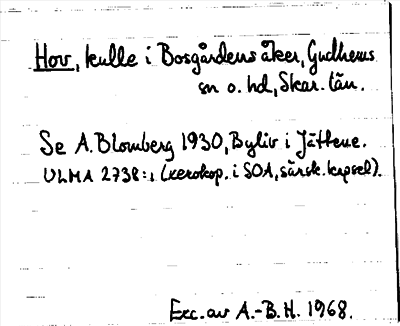 Hov, kulle i Bosgårdens åker, Gudhems
sn o. hd, Skar. län.
Se A. Blomberg 1930, Byliv i Jättene.
ULMA 2738:1 (xerokop. i SOA, särsk. kapsel).
Exc. av A.-B. H. 1968.